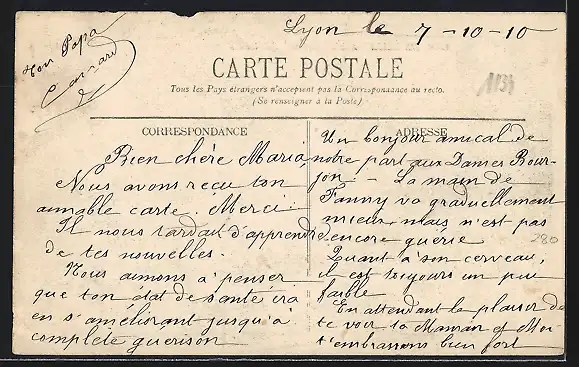 Lyon le 7-10-10
Ton Papa
CARTE POSTALE
Tous les Pays étrangers n'acceptent pas la Correspondance au recto.
(Se renseigner à la Poste)
1134
CORRESPONDANCE
Bien chère Maria,
Nous avons reçu ton
aimable carte. Merci.
Il nous tardait d'apprendre
de tes nouvelles.
Nous aimons à penser
que ton état de santé ira
en s'améliorant jusqu'à
complète guérison
ADRESSE
Un bonjour amical de
notre part aux Dames Bour-
jon. - La main de
Fanny va graduellement
mieux, mais n'est pas
encore guérie.
Quant à son cerveau,
il est toujours un peu
faible
En attendant le plaisir de
te voir ta Maman et Moi
t'embrassons bien fort
280